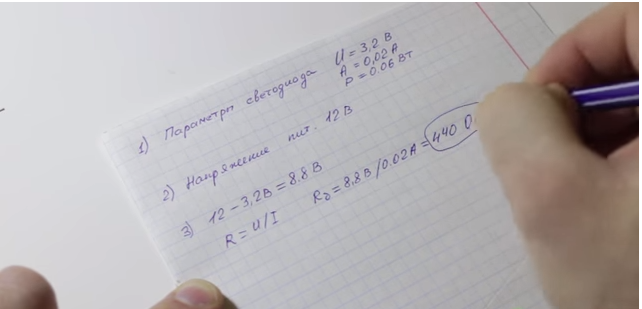 1) Параметры светодиода U = 3,2 В
A = 0,02 А
P = 0.06 Вт
2) Напряжение пит. 12 В
3) 12 - 3,2В = 8.8 В
R = U/I Rд = 8,8В/0.02А = 440 О